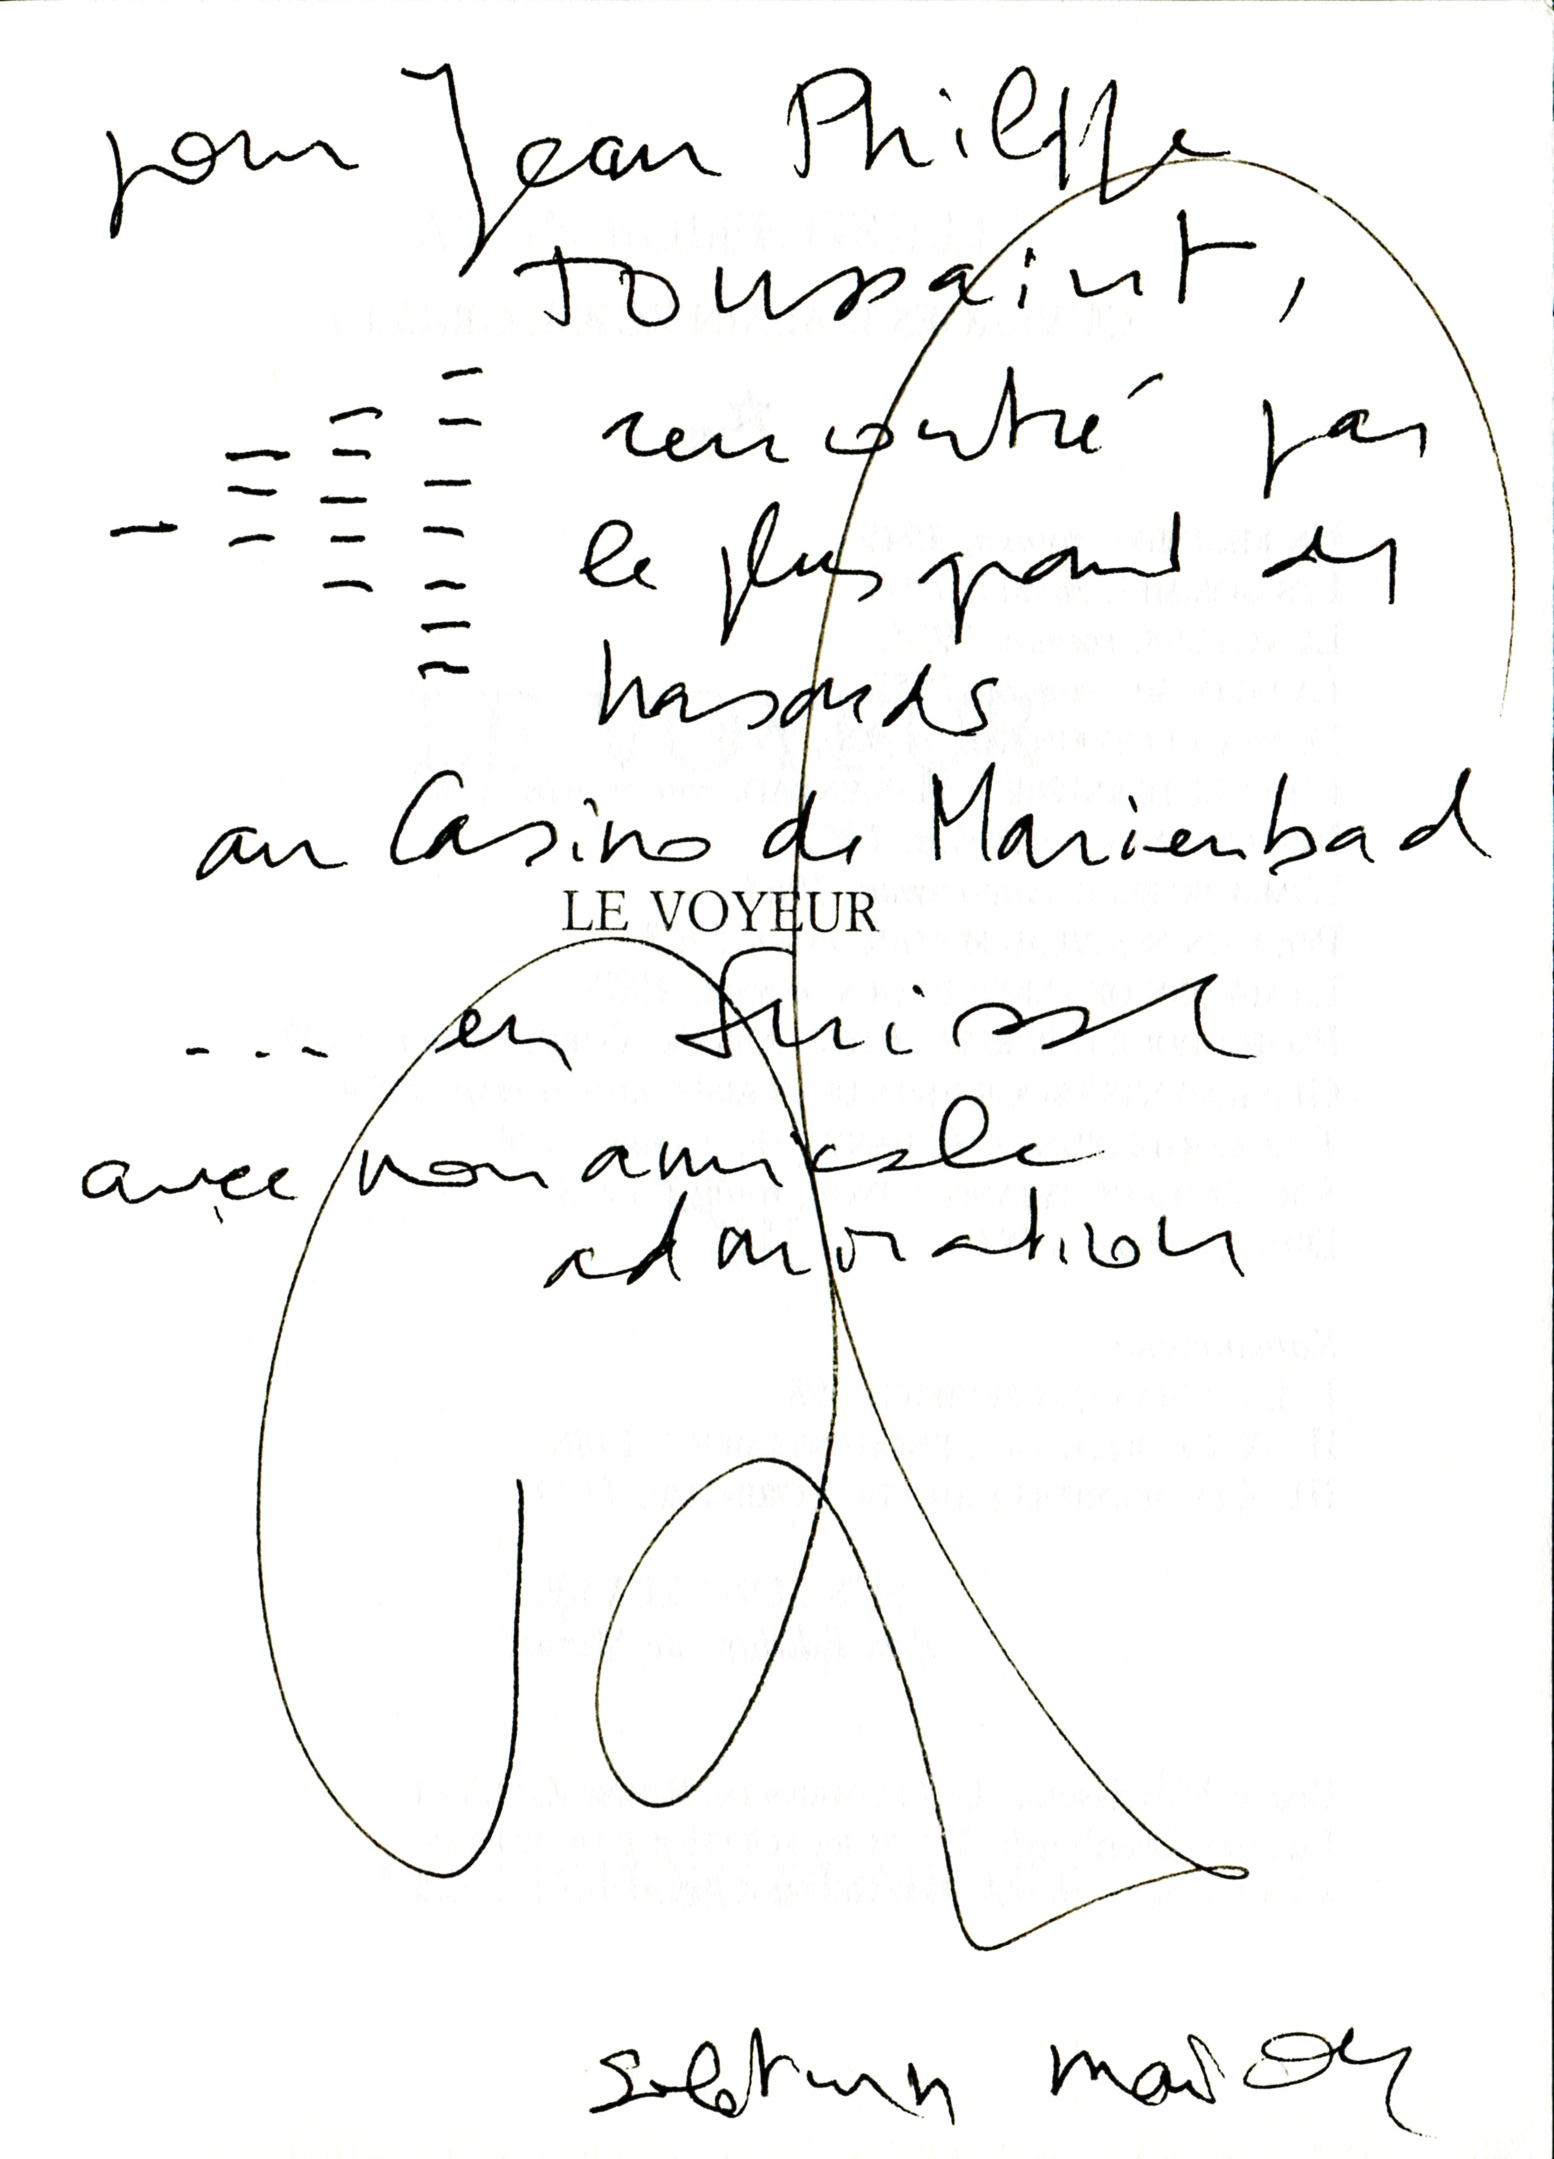 pour Jean Philippe
Toussaint,
rencontré par
le plus grand des
hasards
au Casino de Marienbad
LE VOYEUR
... en Suisse
avec mon amicale
admiration